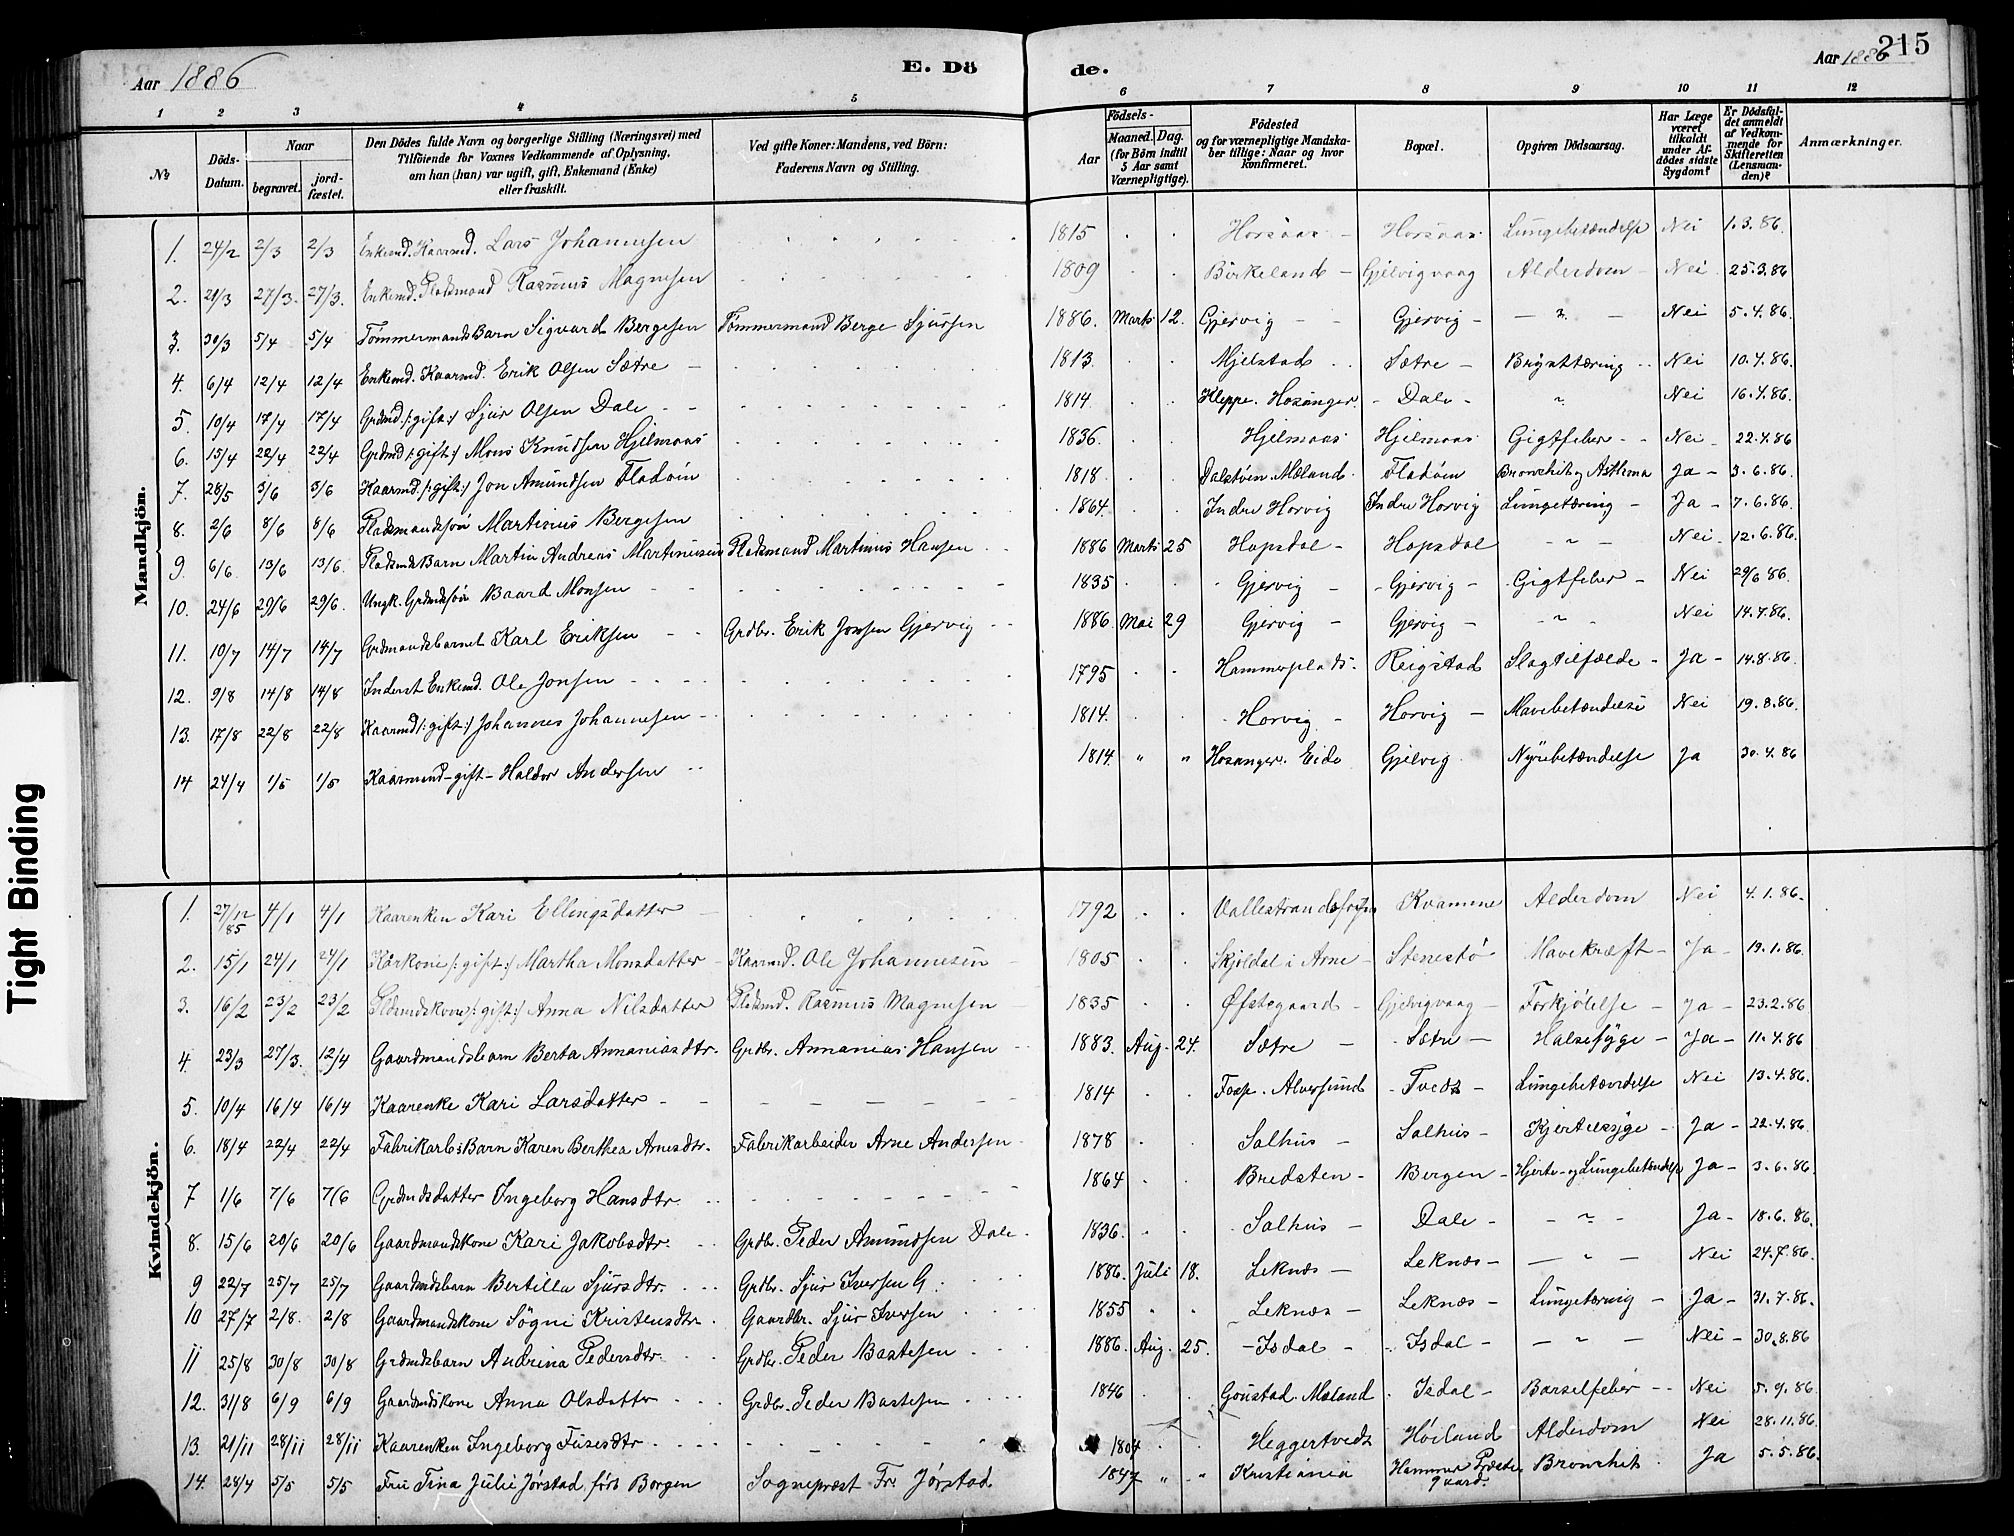 Aar 1886 E. Dö de. Aar 1886 215
1 2 3 4 5 6 7 8 9 10 11 12
№ Döds-Datum. Naar begravet. jordfæstet. Den Dödes fulde Navn og borgerlige Stilling (Næringsvei) med Tilföiende for Voxnes Vedkommende af Oplysning, om han (hun) var ugift, gift, Enkemand (Enke) eller fraskilt. Ved gifte Koner: Mandens, ved Börn: Faderens Navn og Stilling. Aar Födsels- Maaned. Dag. (for Börn indtil 5 Aar samt Værnepligtige). Födested og for værnepligtige Mandskaber tillige: Naar og hvor konfirmeret. Bopæl. Opgiven Dödsaarsag. Har Læge været tilkaldt under Afdödes sidste Sygdom? Er Dödsfaldet anmeldt af Vedkommende for Skifteretten (Lensmanden)? Anmærkninger.
Mandkjön.
1. 24/2 2/3 2/3 Enkemd. Kaarmd. Lars Johannesen 1815 Horsaas Horsaas Lungebetændelse Nei 1.3.86.
2. 20/3 27/3. 27/3. Enkemd. Pladsmand Rasmus Magnesen 1809 Birkeland Gjelvigvaag Alderdom Nei 25.3.86
3. 30/3 5/4 5/4 Tømmermands Barn Sigvard Bergesen Tømmermand Berge Sjursen 1886. Marts 12. Gjervig Gjervig - ? - Nei 5.4.86.
4. 6/4 12/4 12/4 Enkemd. Kaarmd. Erik Olsen Sætre 1813. Mjelstad Sætre Brysttæring Nei 10.4.86.
5. 10/4 17/4 17/4 Grdmd /: gift :/ Sjur Olsen Dale 1814 Kleppe. Hosanger. Dale " Nei 16.4.86.
6. 15/4 22/4 22/4 Grdmd /: gift :/ Mons Knudsen Hjelmaas 1836. Hjelmaas Hjelmaas Gigtfeber Nei 22.4.86
7. 28/5 3/6 3/6 Kaarmd. /: gift :/ Jon Amundsen Fladøin 1818 Dalstøen. Mæland. Fladøen Bronchit og Asthma Ja 3.6.86.
8. 2/6 8/6 8/6 Pladsmandssøn Martinus Bergesen 1864. Indre Horvig Indre Horvig Lungetæring Ja 7.6.86.
9. 6/6. 13/6 13/6. Pladsmds Barn Martin Andreas Martinusen Pladsmand Martinus Hansen 1886 Marts 25 Hopsdal Hopsdal - " - Nei 12.6.86.
10. 24/6 29/6 29/6. Ungk. Grdmdssøn Baard Monsen 1835 Gjervig Gjervig Gigtfeber Nei 29/6 86.
11. 10/7 14/7 14/7 Grdmandsbarnet Karl Eriksen Grdbr. Erik Jonsen Gjervig 1886. Mai 29 Gjervig Gjervig - " - Nei 14.7.86.
12. 9/8 14/8 14/8 Inderst Enkemd. Ole Jonsen 1795 Hammerplads. Reigstad Slagtilfælde Ja 14.8.86.
13. 17/8 22/8 22/8 Kaarmd /: gift :/ Johannes Johannesen 1814. Horvig Horvig Mavebetændelse Nei 19.8.86.
14 24/4 1/5 1/5 Kaarmand - gift - Haldor Andersen 1814 " " Hosanger. Eide Gjelvig Nyrebetændelse Ja 30.4.86
Kvindekjön.
1. 27/12 85 4/1 4/1 Kaarenken Kari Ellingsdatter 1792 Kvamme Alderdom Nei 4.1.86.
2. 15/1 24/1 24/1 Kårkone /: gift :/ Martha Monsdatter Kaarmd. Ole Johannesen 1805 Skjoldal i Arne Stenestø Mavekræft Ja 19.1.86.
3. 16/2 23/2 23/2 Pldsmdskone /: gift :/ Anna Nilsdatter Pladsmd. Rasmus Magnesen 1835 Øfstegaard Gjelvigvaag Forkjølelse Ja 23.2.86.
4. 23/3 27/3. 12/4 Gaardmandsbarn Berta Annaniasdtr. Grdbr. Annanias Hansen 1883. Aug. 24. Sætre Sætre Halsesyge Ja 11.4.86
5. 10/4 16/4 16/4 Kaarenke Kari Larsdatter 1814 Fosse. Alversund Tvedt Lungebetændelse Nei 13.4.86.
6. 18/4 22/4 22/4 Fabrikarb:s Barn Karen Berthea Arnesdtr. Fabrikarbeider Arne Andersen 1878 Salhus Salhus Kjertelsyge Ja 22.4.86.
7 1/6 7/6 7/6 Grdmdsdatter Ingeborg Hansdtr. 1864 Bredsten Bergen Hjerte- og Lungebetændelse Ja 3.6.86.
8. 15/6 20/6 20/6 Gaardmandskone Kari Jakobsdtr. Grdbr. Peder Amundsen Dale 1836. Salhus Dale - " - Ja 18.6.86.
9 22/7 25/7 25/7 Gaardmdsbarn Bertilla Sjursdtr. Grdbr. Sjur Iversen G. 1886. Juli 18. Leknæs Leknæs - " - Nei 24.7.86.
10 27/7 2/8. 2/8 Gaardmandskone Søgni Kristensdtr. Gaardbr. Sjur Iversen 1855 Leknæs Leknæs Lungetæring Ja 31.7.86.
11 25/8 30/8 30/8 Grdmdsbarn Andrina Pedersdtr. Grdbr. Peder Bastesen 1886. Aug. 25. Isdal Isdal - " - Nei 30.8.86
12. 31/8 6/9 6/9 Gaardmdskone Anna Olsdatter Grdbr. Peder Bastesen 1846 Mæland Isdal Barselfeber Nei 5.9.86.
13. 21/11 28/11 28/11 Kaarenken Ingeborg Fusesdtr 1804 Heggertvedt Høiland Alderdom Nei 28.11.86.
14. 28/4 5/5 5/5 Fru Tina Julie Jørstad, født Borgen Sognepræst Fr. Jørstad 1847 " " Kristiania Hammer Præstegaard. Bronchit Ja 5.5.86.
Tight Binding